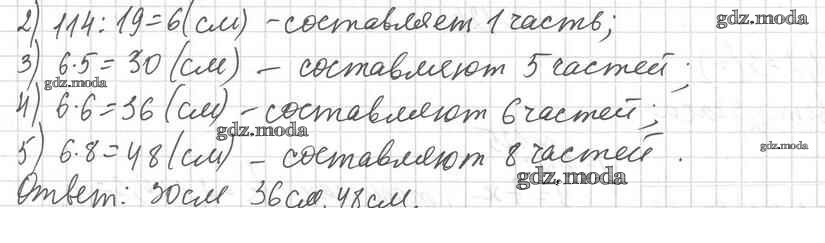 gdz.moda
2) 114:19=6(см) -составляет 1 часть;
3) 6·5=30(см) – составляют 5 частей;
gdz.moda
4) 6·6=36(см) -составляют 6 частей;
gdz.moda
5) 6·8=48(см) – составляют 8 частей.
gdz.moda
gdz.moda
Ответ: 30см 36см. 48см.